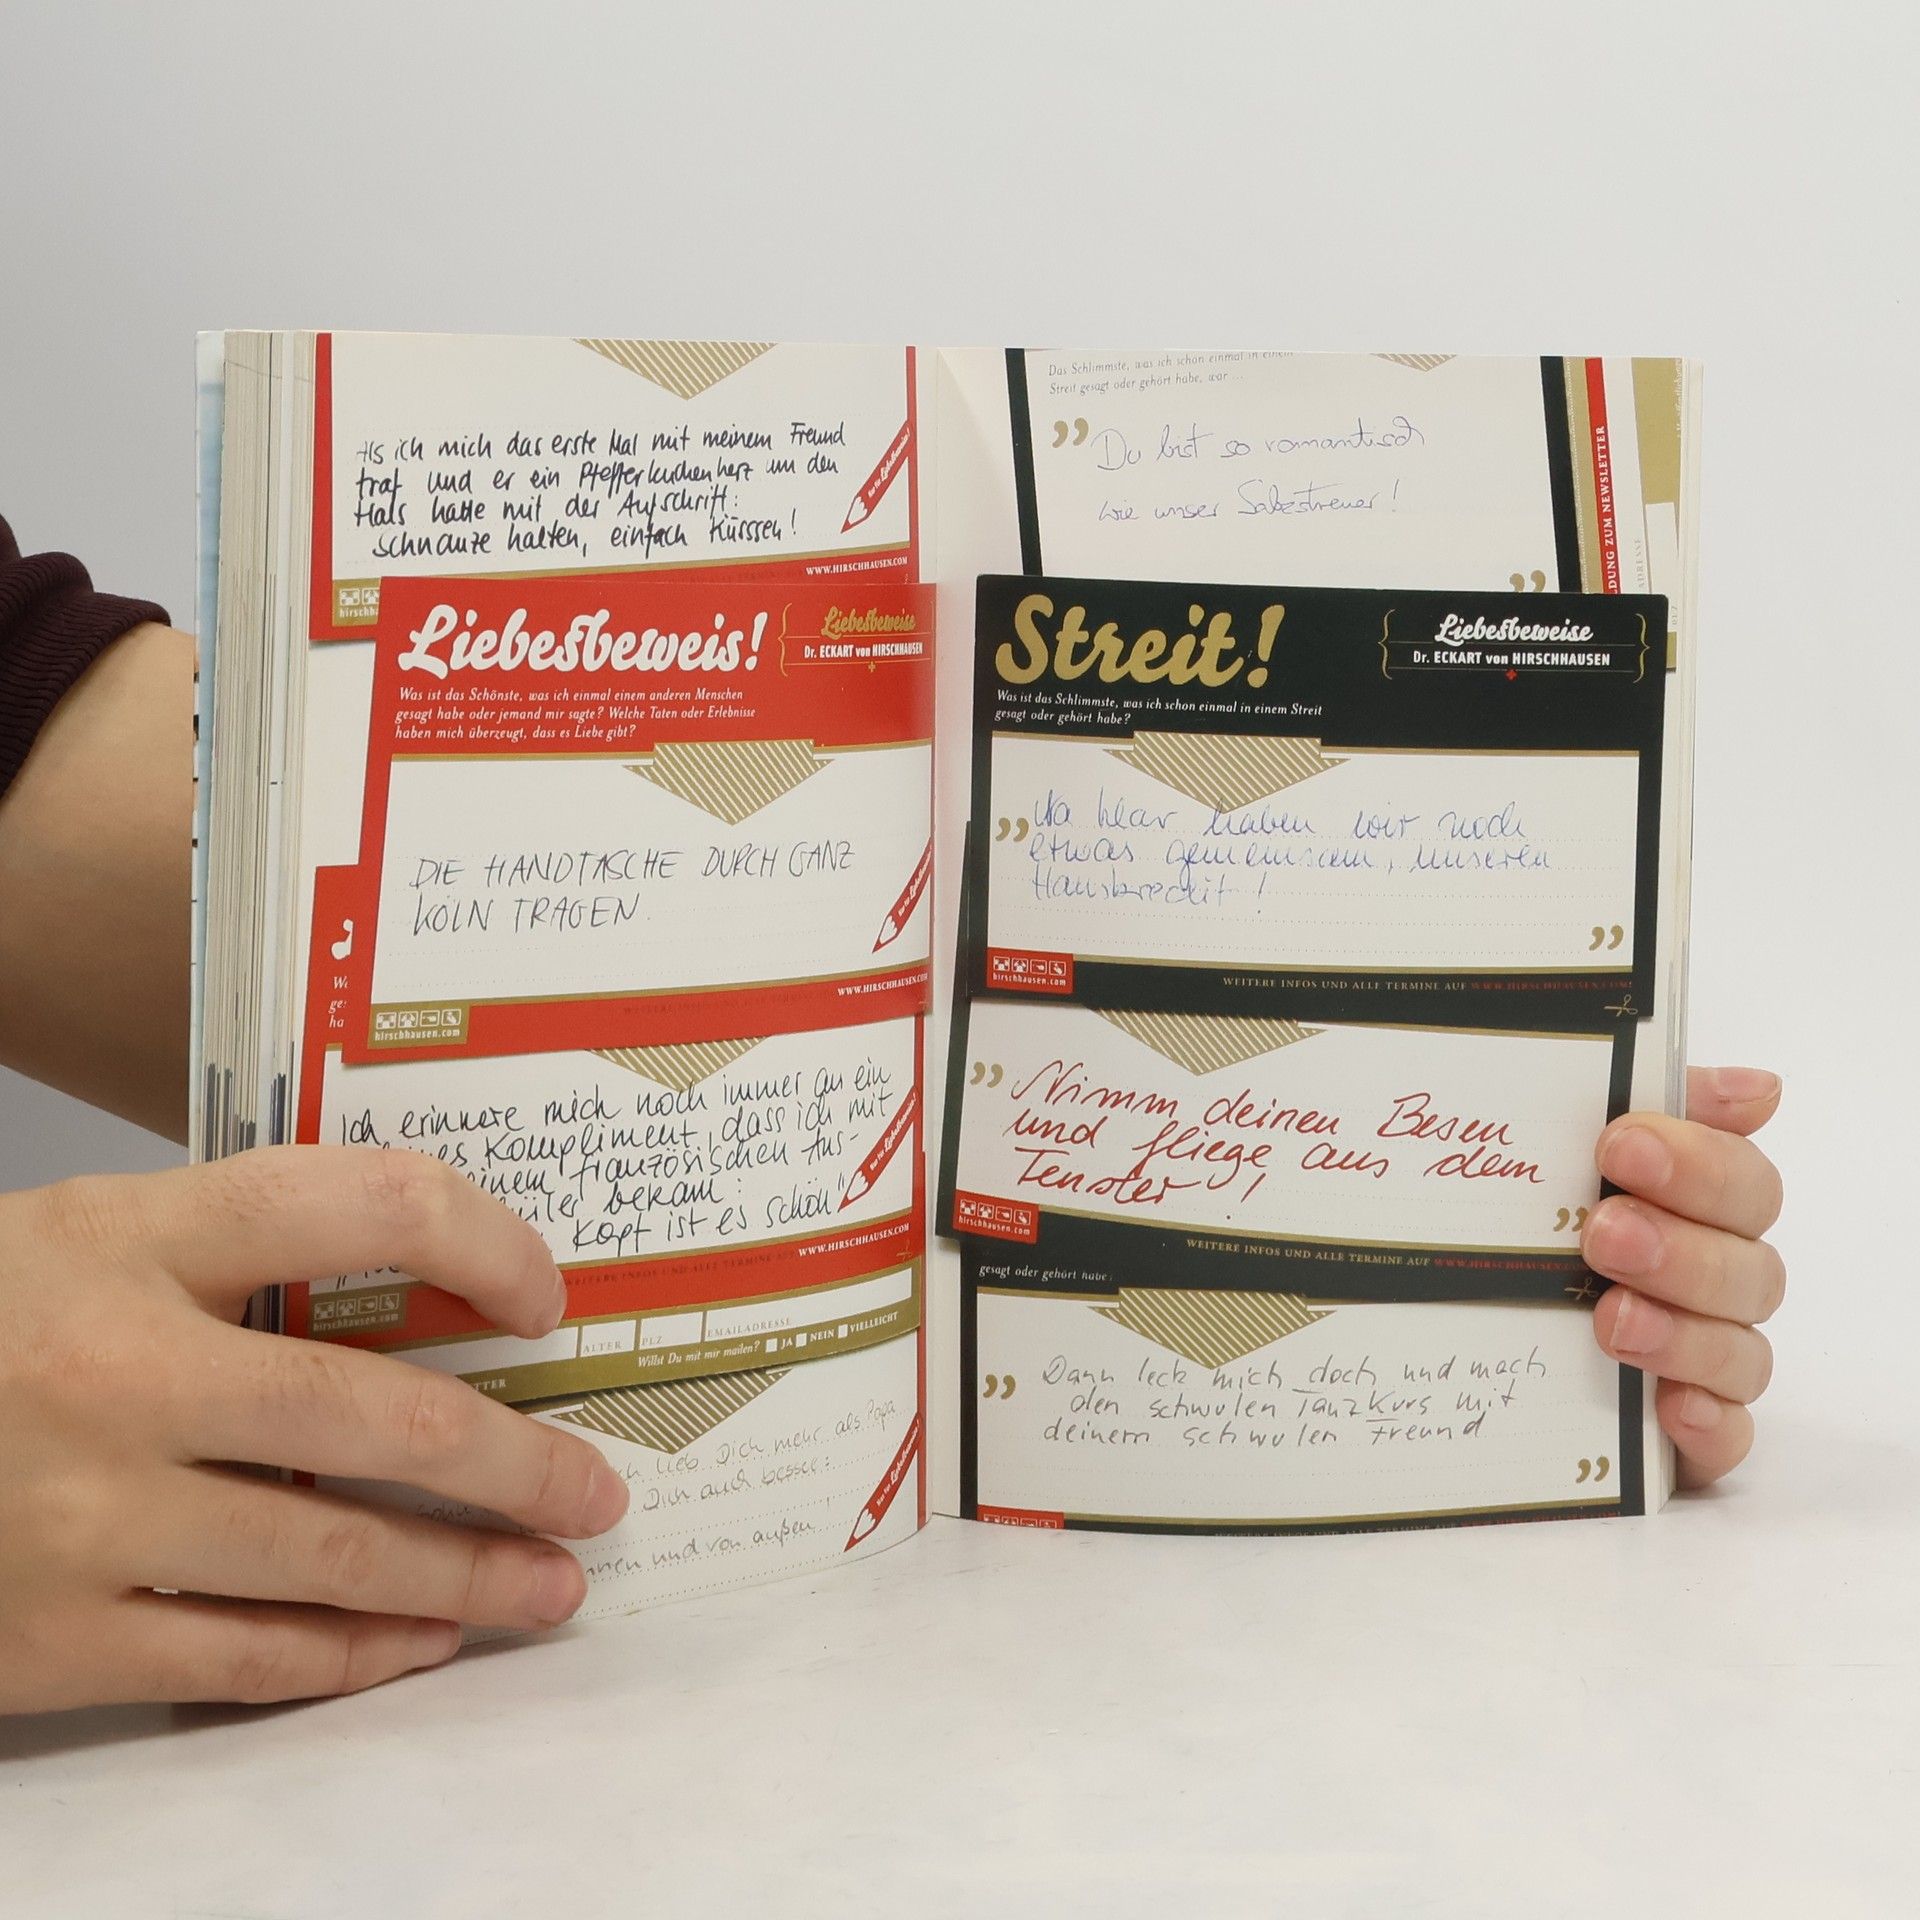 Als ich mich das erste Mal mit meinem Freund
traf und er ein Pfefferkuchenherz um den
Hals hatte mit der Aufschrift:
Schnauze halten, einfach Küssen!
Nur für Liebesbeweise!
WWW.HIRSCHHAUSEN.COM
hirschh
Liebesbeweis!
Liebesbeweise
Dr. ECKART von HIRSCHHAUSEN
Was ist das Schönste, was ich einmal einem anderen Menschen
gesagt habe oder jemand mir sagte? Welche Taten oder Erlebnisse
haben mich überzeugt, dass es Liebe gibt?
DIE HANDTASCHE DURCH GANZ
KÖLN TRAGEN.
Nur für Liebesbeweise
WWW.HIRSCHHAUSEN.COM
hirschhausen.com
We
ge
ha
Ich erinnere mich noch immer an ein
Kompliment, dass ich mit
einem französischen Aus-
bekam:
Kopf ist es schön"
Nur für Liebesbeweise!
WEITERE INFOS UND ALLE TERMINE AUF WWW.HIRSCHHAUSEN.COM
hirschhausen.com
ALTER PLZ EMAILADRESSE
Willst Du mit mir mailen? JA NEIN VIELLEICHT
TTER
ch lieb Dich mehr als Papa
Dich auch besser:
innen und von außen
Nur für Liebesbeweise!
Das Schlimmste, was ich schon einmal in einem
Streit gesagt oder gehört habe, war ...
„Du bist so romantisch
wie unser Salzstreuer!
”
DUNG ZUM NEWSLETTER
ADRESSE
PLZ
Streit!
Liebesbeweise
Dr. ECKART von HIRSCHHAUSEN
Was ist das Schlimmste, was ich schon einmal in einem Streit
gesagt oder gehört habe?
” Na klar haben wir noch
etwas gemeinsam, unseren
Hauskredit!
”
hirschhausen.com
WEITERE INFOS UND ALLE TERMINE AUF WWW.HIRSCHHAUSEN.COM!
” Nimm deinen Besen
und fliege aus dem
Fenster!
”
hirschhausen.com
WEITERE INFOS UND ALLE TERMINE AUF WWW.HIRSCHHAUSEN.CO
gesagt oder gehört habe?
” Dann leck mich doch und mach
den schwulen Tanzkurs mit
deinem schwulen Freund
”